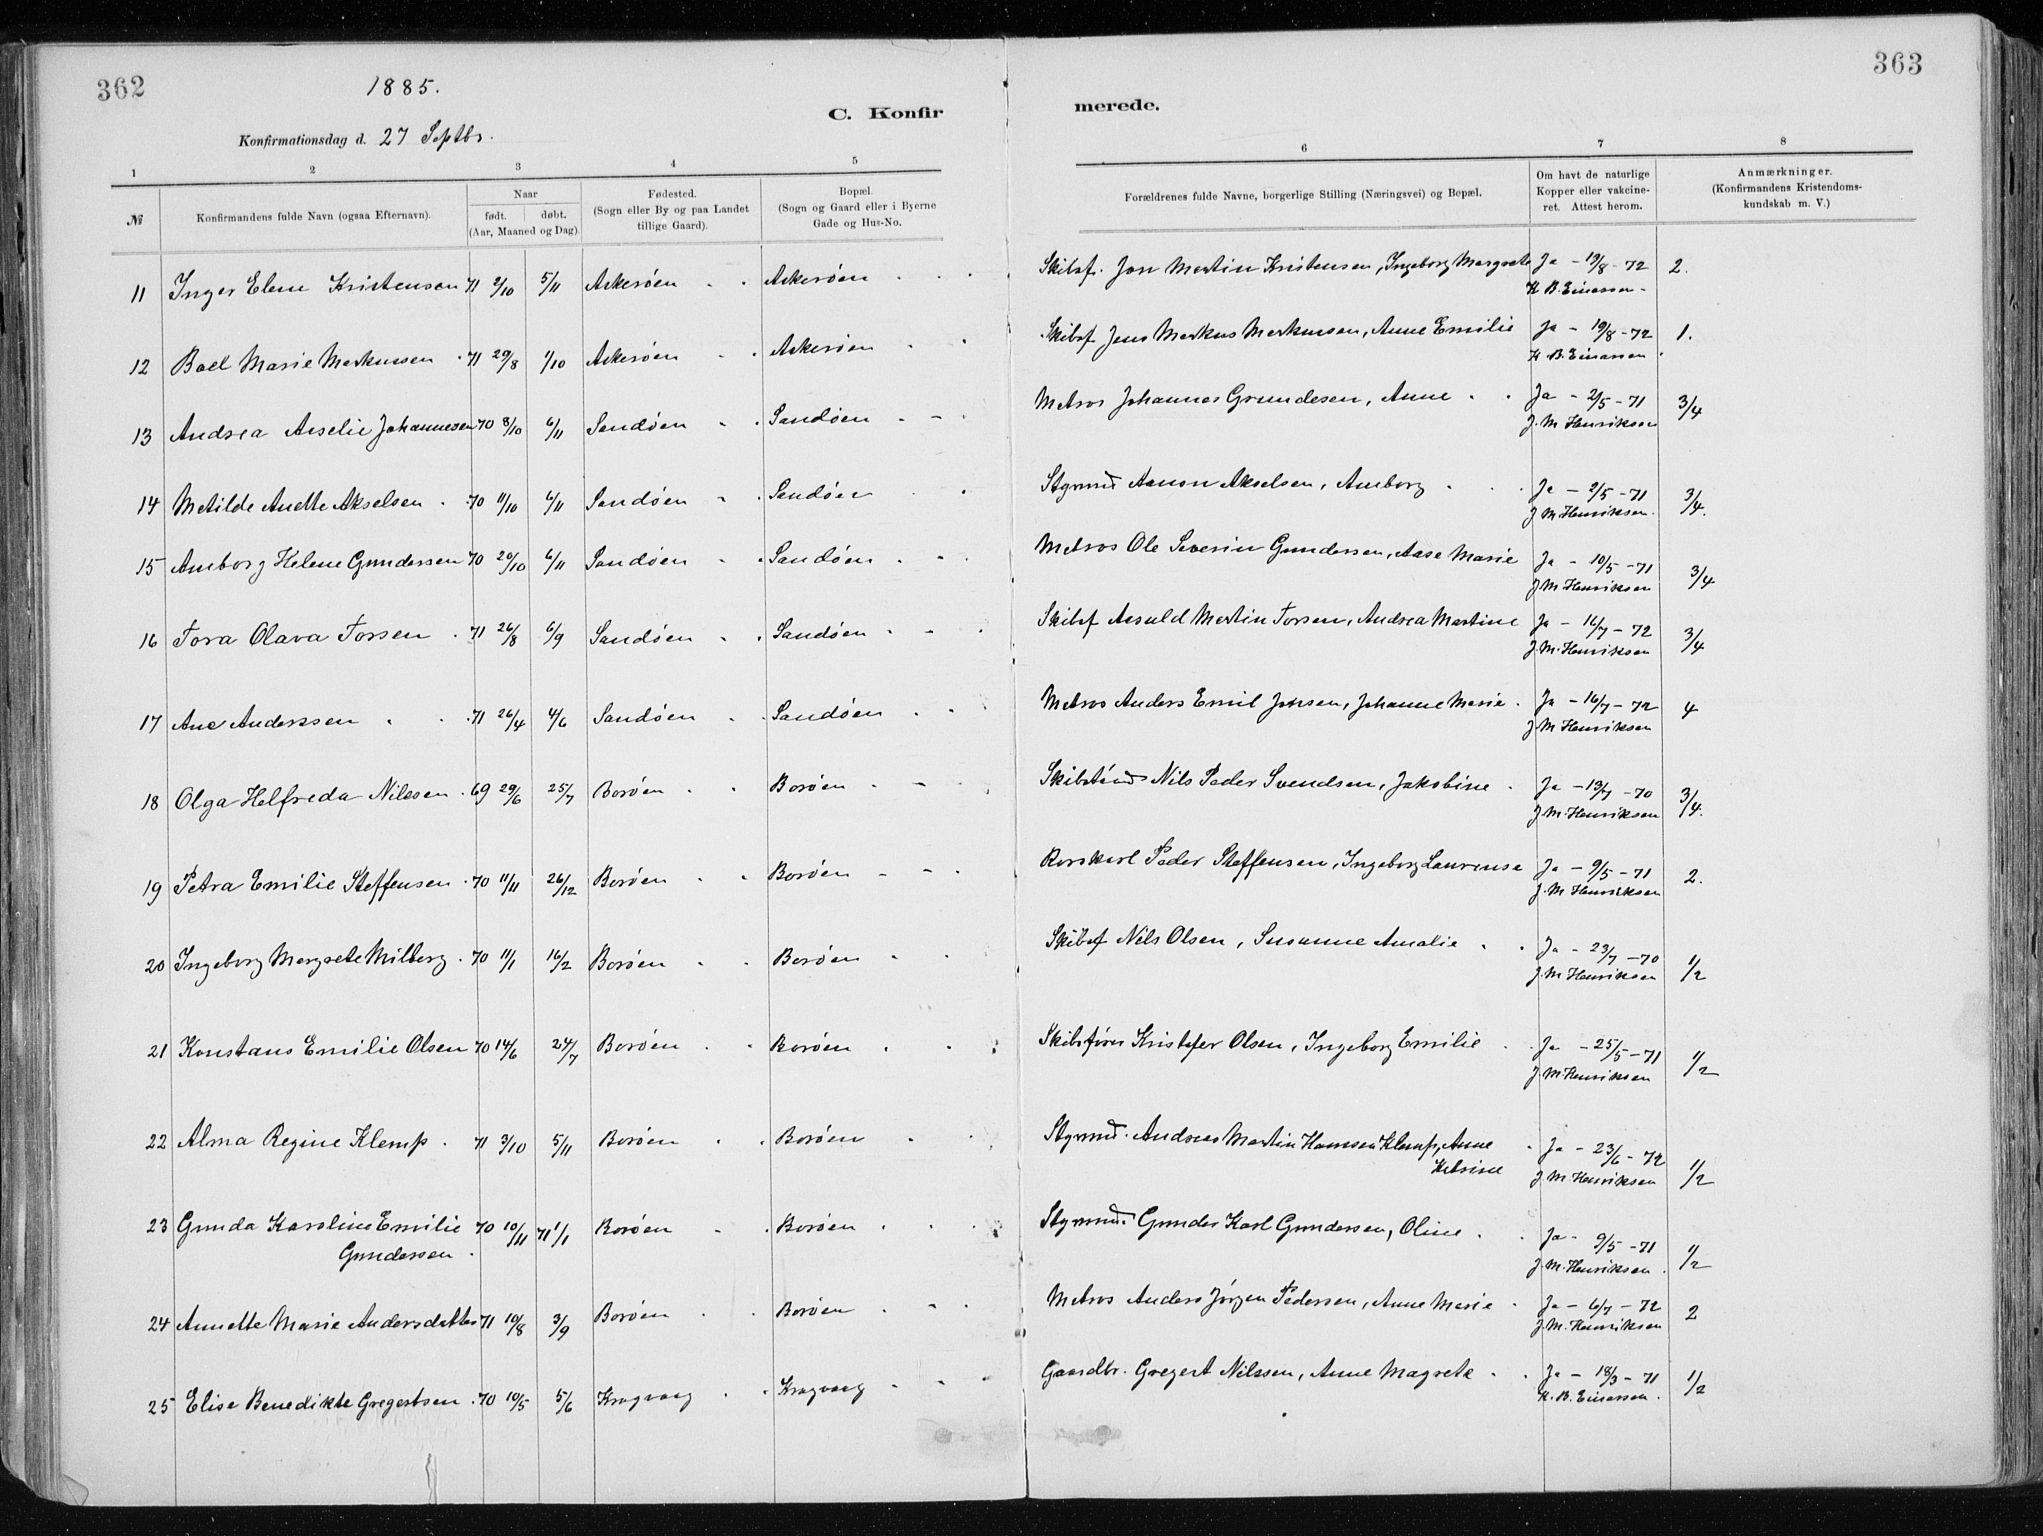 362
363
1885.
C. Konfir
merede.
Konfirmationsdag d. 27 Septbr.
1 2 3 4 5 6 7 8
№ Konfirmandens fulde Navn (ogsaa Efternavn). Naar født. døbt. (Aar, Maaned og Dag). Fødested. (Sogn eller By og paa Landet tillige Gaard). Bopæl. (Sogn og Gaard eller i Byerne Gade og Hus-No. Forældrenes fulde Navne, borgerlige Stilling (Næringsvei) og Bopæl. Om havt de naturlige Kopper eller vakcineret. Attest herom. Anmærkninger. (Konfirmandens Kristendomskundskab m. V.)
11 Inger Elene Kristensen 71 2/10 5/11 Askerøen Askerøen Skibsf. Jon Martin Kristensen, Ingeborg Margrete Ja - 19/8 - 72 2.
K B. Einersen
12 Boel Marie Markussen 71 29/8 1/10 Askerøen Askerøen Skibsf Jens Markus Markussen, Anne Emilie Ja - 19/8 - 72 1.
K. B. Einersen
13 Andrea Asselie Johannesen 70 8/10 6/11 Sandøen Sandøen Matros Johannes Grundesen, Anne Ja - 2/5 - 71 3/4
J. M Henriksen
14 Matilde Anette Akselsen 70 11/10 6/11 Sandøen Sandøen Stÿrmd Aanon Akselsen, Amborg Ja - 9/5 - 71 3/4.
J M. Henriksen.
15 Amborg Helene Gundersen 70 20/10 6/11 Sandøen Sandøen Matros Ole Severin Gundersen, Aase Marie Ja - 10/5 - 71 3/4
J M. Henriksen
16 Tora Olava Torsen 71 26/8 6/9 Sandøen Sandøen Skibsf Asuld Martin Torsen, Andrea Martine Ja - 16/7 - 72 3/4
J. M. Henriksen
17 Ane Anderssen 71 26/4 4/6 Sandøen Sandøen Matros Anders Emil Jensen, Johanne Marie Ja - 16/7 - 72 4
J M Henriksen
18 Olga Helfreda Nilssen 69 29/6 25/7 Borøen Borøen Nils Peder Svendsen, Jakobine Ja - 13/7 - 70 3/4.
J. M. Henriksen
19 Petra Emilie Steffensen 70 11/11 26/12 Borøen Borøen Peder Steffensen, Ingeborg Laurense Ja - 9/5 - 71 2.
J. M. Henriksen
20 Ingeborg Margrete Milberg 70 11/1 16/2 Borøen Borøen Skibsf Nils Olsen, Susanne Amalie Ja - 23/7 - 70 1/2
J. M Henriksen
21 Konstans Emilie Olsen 70 14/6 24/7 Borøen Borøen Skibsfører Kristofer Olsen, Ingeborg Emilie Ja - 25/5 - 71 1/2
J. M. Henriksen
22 Alma Regine Klemp 71 3/10 5/11 Borøen Borøen Styrmd. Andreas Martin Hanssen Klemp, Anne Ja - 23/6 - 72
Katrine J. M. Henriksen 1/2
23 Gunda Karoline Emilie 70 10/11 71 1/1 Borøen Borøen Styrmd. Gunder Karl Gundersen, Oline Ja - 9/5 - 71 1/2
Gundersen J. M. Henriksen
24 Annette Marie Andersdatter 71 10/8 3/9 Borøen Borøen Matros Anders Jørgen Pedersen, Anne Marie Ja - 6/7 - 72 2
J. M. Henriksen
25 Elise Benedikte Gregertsen 70 10/5 5/6 Kragvaag Kragvaag Gaardbr. Gregert Nilssen, Anne Magrete Ja - 18/3 - 71 1/2
K. B. Einersen.